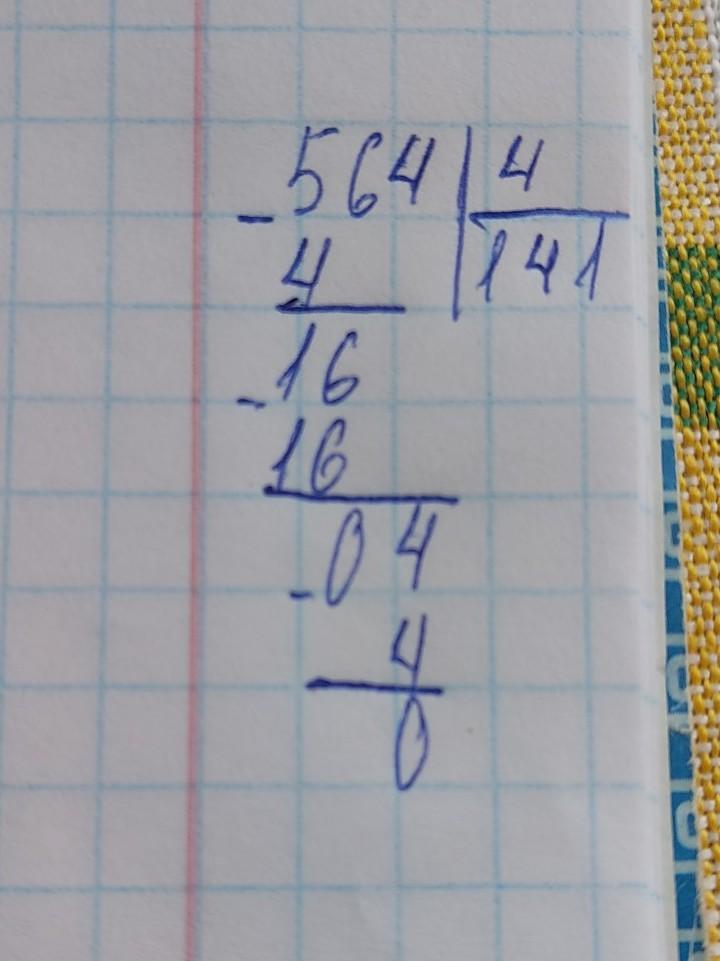 -564 | 4
4 | 141
-16
16
-04
4
0